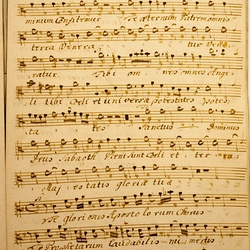 minum Confitemur Te æternum Patrem omnis
terra Venera tur Vene
ratur. Tibi omnes Ange
li tibi Coeli et universæ potestates
ta tes Sanctus Dominus
Deus Sabaoth Pleni sunt Coeli et ter
Maj estatis gloriæ tuæ
gloriosus Aposto lorum Chorus
Te Prophetarum Laudabilis nu merus